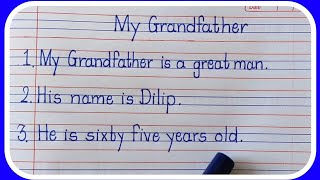 My Grandfather
1. My Grandfather is a great man.
2. His name is Dilip.
3. He is sixty five years old.